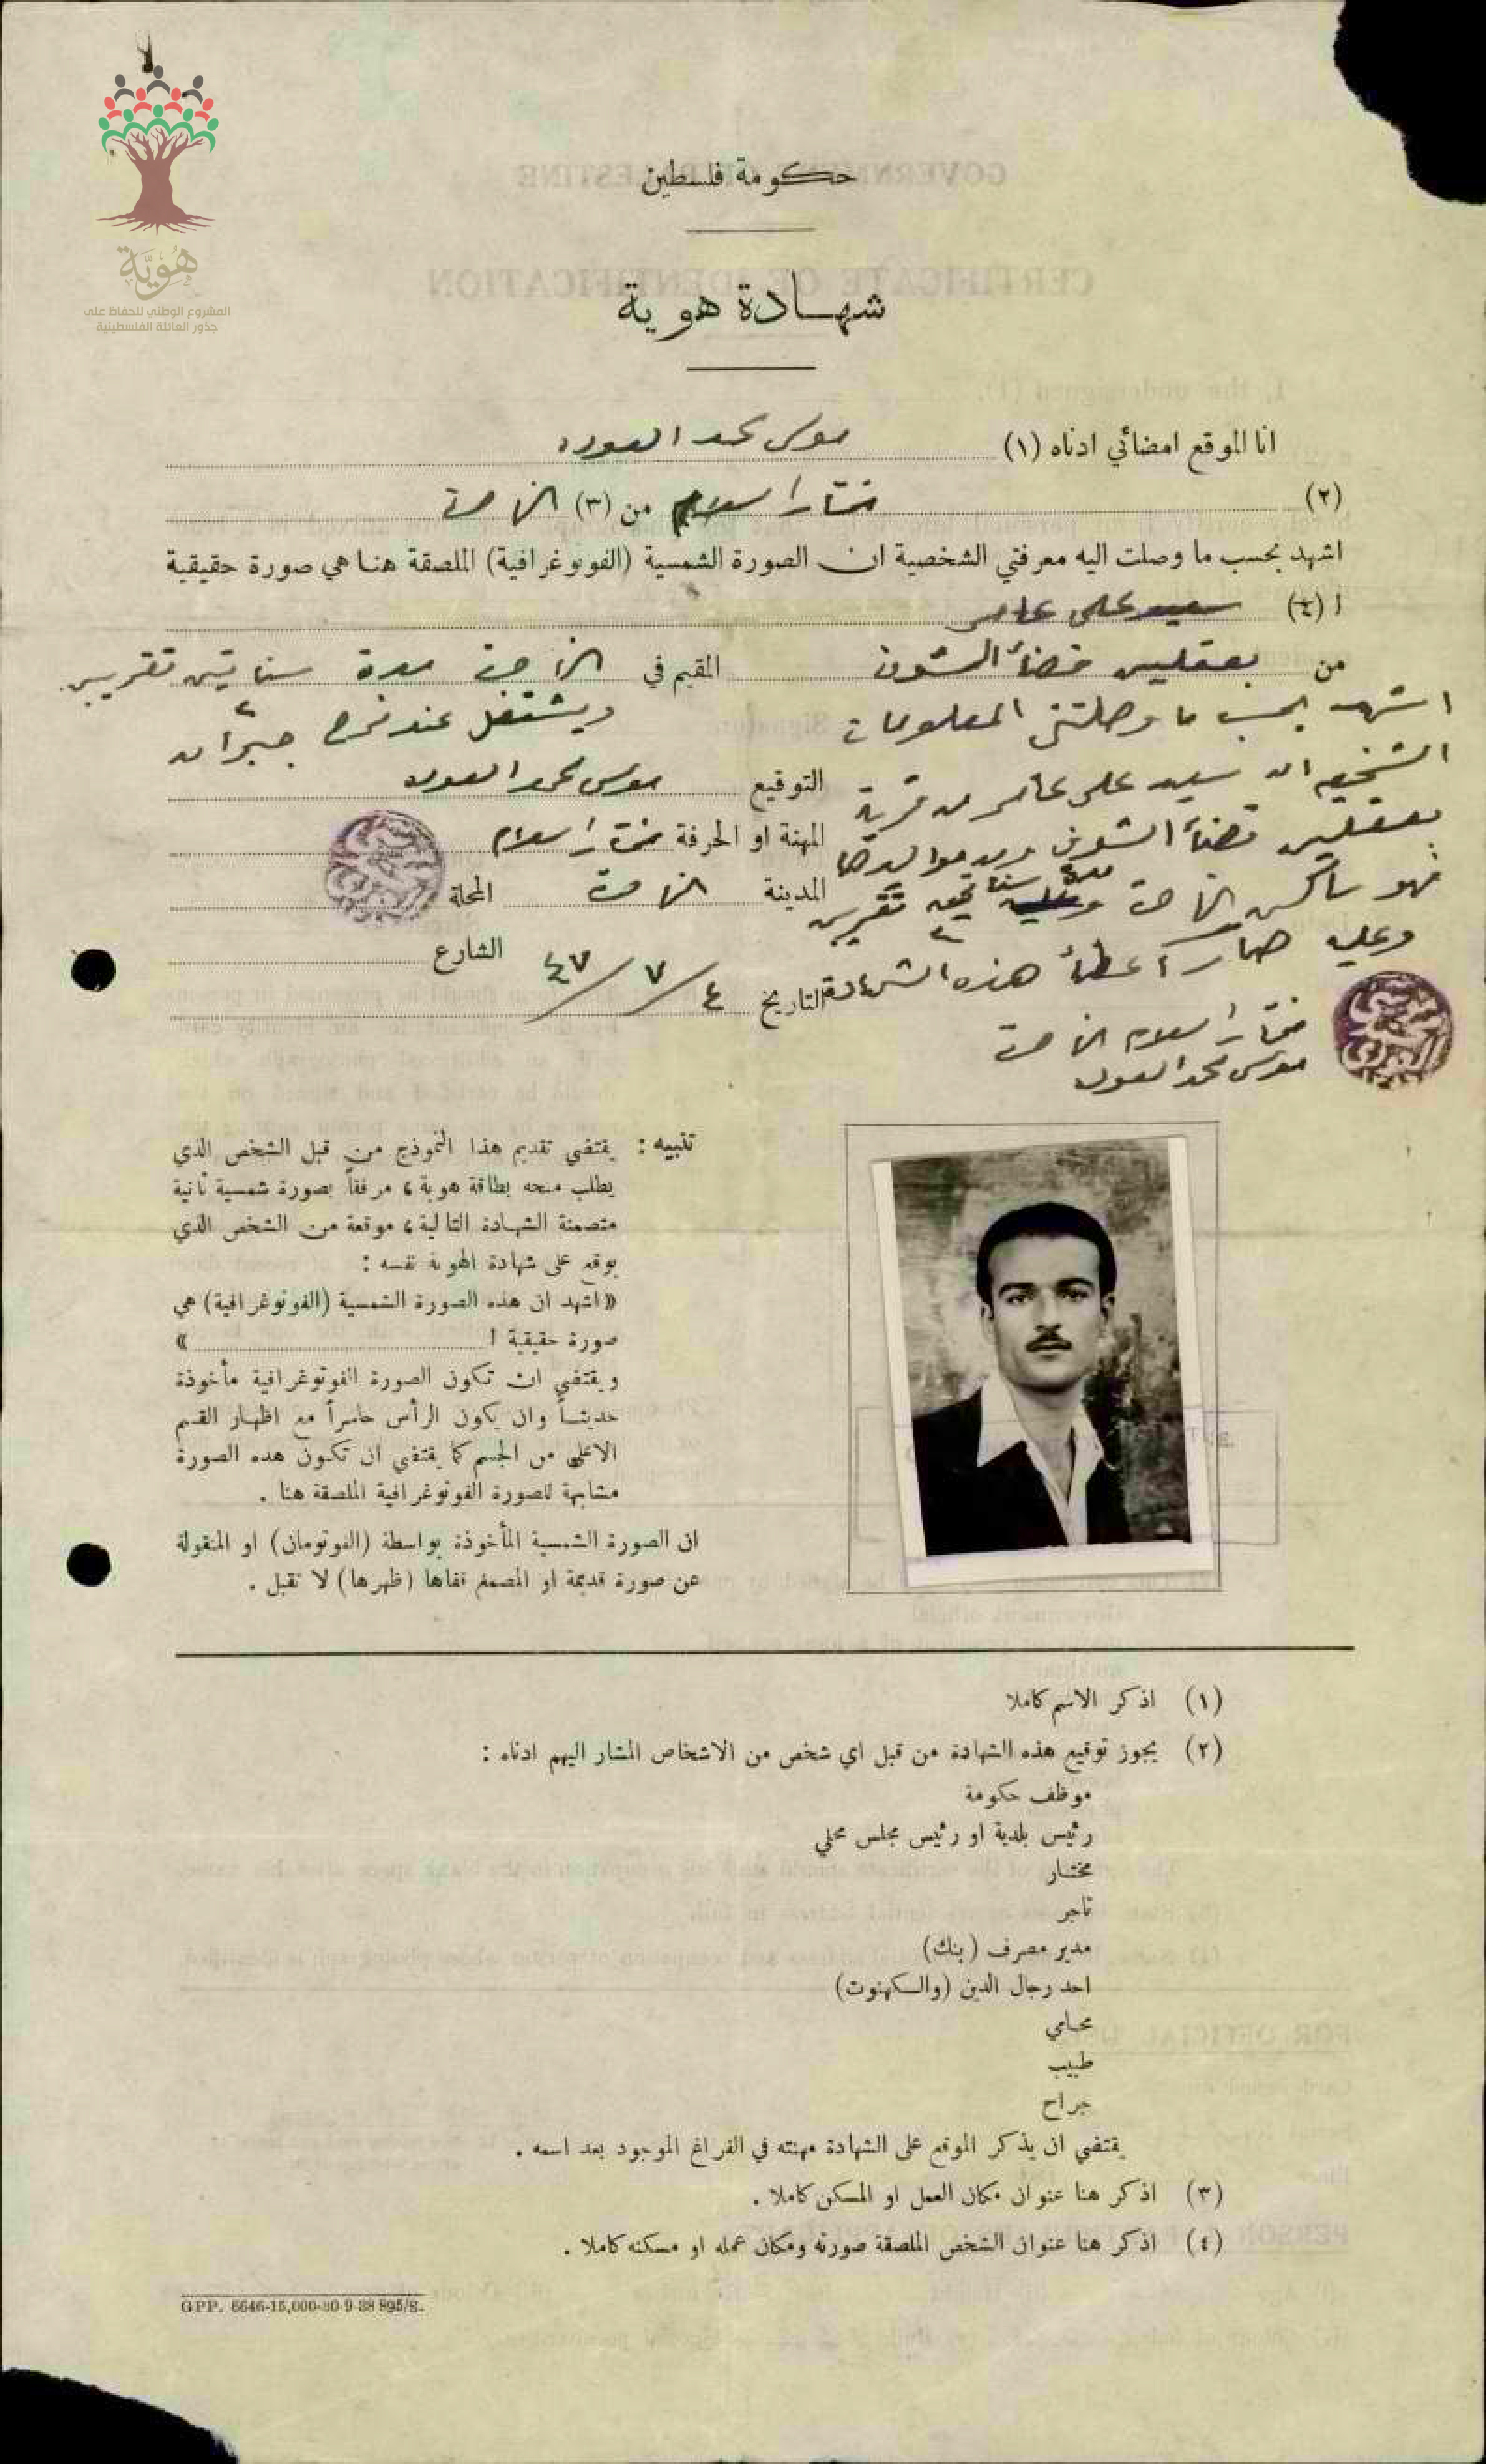 هُوِيَّة
المشروع الوطني للحفاظ على
جذور العائلة الفلسطينية
حكومة فلسطين
شهادة هوية
انا الموقع امضائي ادناه (١) موسى محمد العوده
(٢) مختار اسلام من (٣) الناصرة
اشهد بحسب ما وصلت اليه معرفتي الشخصية ان الصورة الشمسية (الفوتوغرافية) الملصقة هنا هي صورة حقيقية
ا (٤) سعيد علي عامر
من بعقلين قضاء الشوف المقيم في الناصرة مدة سنتين تقريبا
ويشتغل عند فرح جبران
اشهد بحسب ما وصلتني المعلومات
الشخصية ان سعيد علي عامر من قرية
بعقلين قضاء الشوف ومن مواليدها
فهو ساكن الناصرة مدة تقريبا
وعليه صار اعطاء هذه الشهادة
مختار اسلام الناصرة
موسى محمد العوده
التوقيع موسى محمد العوده
المهنة او الحرفة مختار اسلام
المدينة الناصرة المحلة
الشارع
التاريخ ٤/٧/٤٧
تنبيه : يقتضي تقديم هذا النموذج من قبل الشخص الذي
يطلب منحه بطاقة هوية ، مرفقاً بصورة شمسية ثانية
متضمنة الشهادة التالية ، موقعة من الشخص الذي
يوقع على شهادة الهوية نفسه :
«اشهد ان هذه الصورة الشمسية (الفوتوغرافية) هي
صورة حقيقية ا »
ويقتضي ان تكون الصورة الفوتوغرافية مأخوذة
حديثاً وان يكون الرأس حاسراً مع اظهار القسم
الاعلى من الجسم كما يقتضي ان تكون هذه الصورة
مشابهة للصورة الفوتوغرافية الملصقة هنا .
ان الصورة الشمسية المأخوذة بواسطة (الفوتومان) او المنقولة
عن صورة قديمة او المصمغ قفاها (ظهرها) لا تقبل .
(١) اذكر الاسم كاملا
(٢) يجوز توقيع هذه الشهادة من قبل اي شخص من الاشخاص المشار اليهم ادناه :
موظف حكومة
رئيس بلدية او رئيس مجلس محلي
مختار
تاجر
مدير مصرف (بنك)
احد رجال الدين (والكهنوت)
محامي
طبيب
جراح
يقتضي ان يذكر الموقع على الشهادة مهنته في الفراغ الموجود بعد اسمه .
(٣) اذكر هنا عنوان مكان العمل او المسكن كاملا .
(٤) اذكر هنا عنوان الشخص الملصقة صورته ومكان عمله او مسكنه كاملا .
GPP. 6646-15,000-30-9-38 895/S.